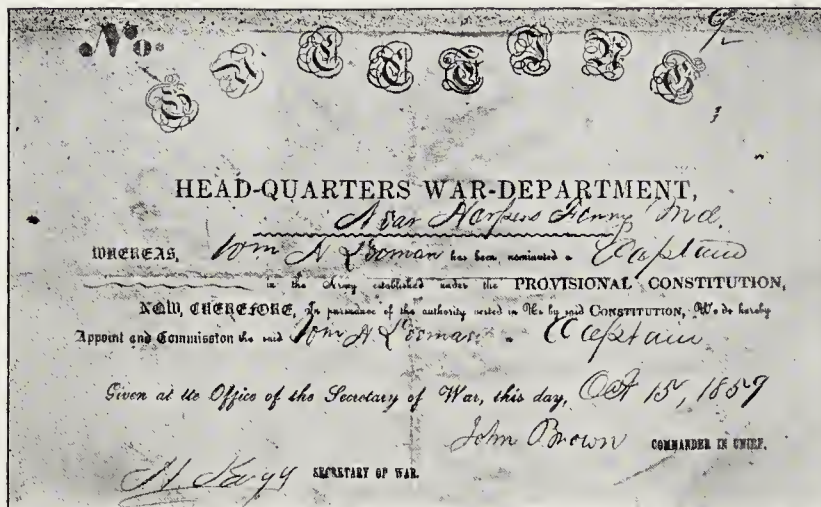 No.
GREETING
HEAD-QUARTERS WAR-DEPARTMENT,
Near Harpers Ferry Md.
WHEREAS, Wm H Leeman has been nominated a Captain
in the Army established under the PROVISIONAL CONSTITUTION,
NOW, THEREFORE, In pursuance of the authority vested in Us by said CONSTITUTION, We do hereby
Appoint and Commission the said Wm H Leeman a Captain
Given at the Office of the Secretary of War, this day, Oct 15, 1859
John Brown COMMANDER IN CHIEF.
H Kagi SECRETARY OF WAR.